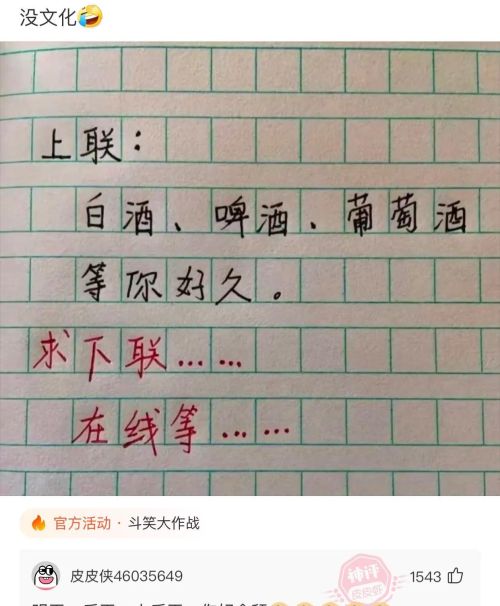 没文化🤣
上联：
白酒、啤酒、葡萄酒
等你好久。
求下联……
在线等……
官方活动 · 斗笑大作战
皮皮侠46035649
神评
皮皮虾
1543